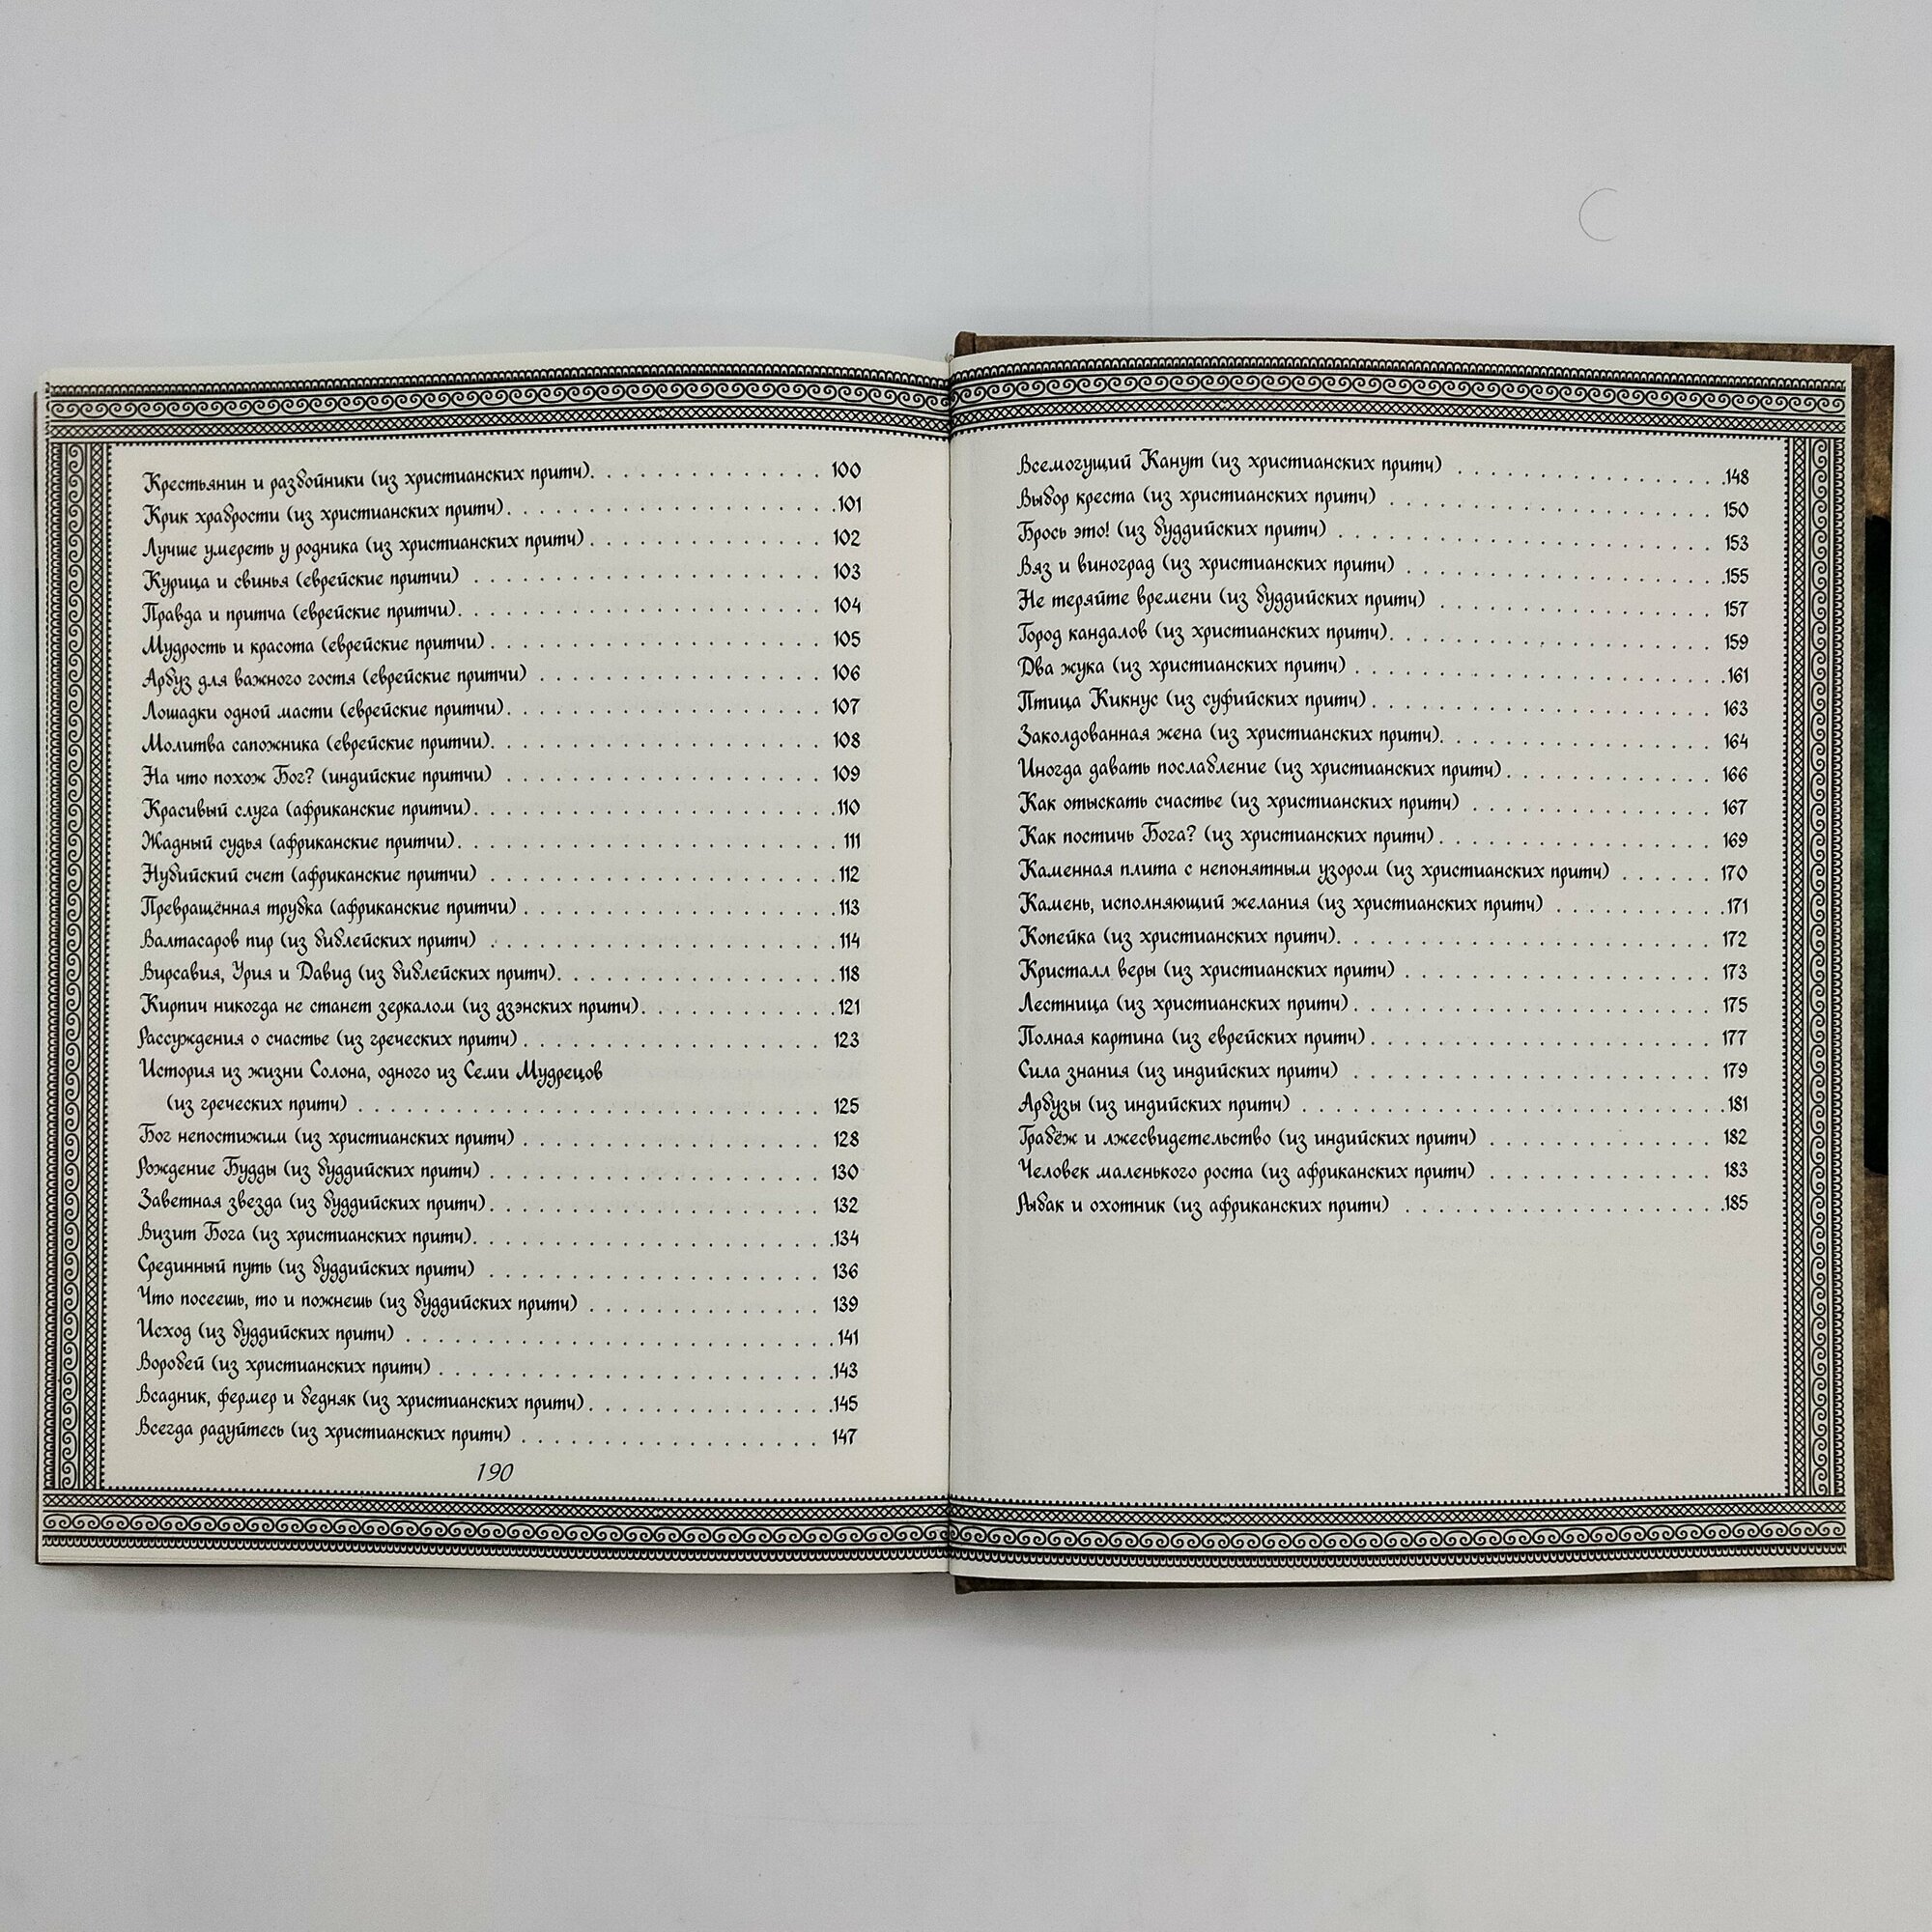 Крестьянин и разбойники (из христианских притч). . . . . . . . . . . . 100
Крик храбрости (из христианских притч). . . . . . . . . . . . 101
Лучше умереть у родника (из христианских притч) . . . . . . . . . . . . 102
Курица и свинья (еврейские притчи) . . . . . . . . . . . . 103
Правда и притча (еврейские притчи). . . . . . . . . . . . 104
Мудрость и красота (еврейские притчи) . . . . . . . . . . . . 105
Арбуз для важного гостя (еврейские притчи) . . . . . . . . . . . . 106
Лошадки одной масти (еврейские притчи). . . . . . . . . . . . 107
Молитва сапожника (еврейские притчи). . . . . . . . . . . . 108
На что похож Бог? (индийские притчи) . . . . . . . . . . . . 109
Красивый слуга (африканские притчи). . . . . . . . . . . . 110
Жадный судья (африканские притчи). . . . . . . . . . . . 111
Нубийский счет (африканские притчи) . . . . . . . . . . . . 112
Превращённая трубка (африканские притчи) . . . . . . . . . . . . 113
Валтасаров пир (из библейских притч) . . . . . . . . . . . . 114
Вирсавия, Урия и Давид (из библейских притч). . . . . . . . . . . . 118
Кирпич никогда не станет зеркалом (из дзэнских притч). . . . . . . . . . . . 121
Рассуждения о счастье (из греческих притч) . . . . . . . . . . . . 123
История из жизни Солона, одного из Семи Мудрецов
(из греческих притч) . . . . . . . . . . . . 125
Бог непостижим (из христианских притч) . . . . . . . . . . . . 128
Рождение Будды (из буддийских притч) . . . . . . . . . . . . 130
Заветная звезда (из буддийских притч). . . . . . . . . . . . 132
Визит Бога (из христианских притч). . . . . . . . . . . . 134
Срединный путь (из буддийских притч) . . . . . . . . . . . . 136
Что посеешь, то и пожнешь (из буддийских притч) . . . . . . . . . . . . 139
Исход (из буддийских притч) . . . . . . . . . . . . 141
Воробей (из христианских притч) . . . . . . . . . . . . 143
Всадник, фермер и бедняк (из христианских притч). . . . . . . . . . . . 145
Всегда радуйтесь (из христианских притч) . . . . . . . . . . . . 147
190
Всемогущий Канут (из христианских притч) . . . . . . . . . . . . 148
Выбор креста (из христианских притч) . . . . . . . . . . . . 150
Брось это! (из буддийских притч) . . . . . . . . . . . . 153
Вяз и виноград (из христианских притч) . . . . . . . . . . . . 155
Не теряйте времени (из буддийских притч) . . . . . . . . . . . . 157
Город кандалов (из христианских притч). . . . . . . . . . . . 159
Два жука (из христианских притч) . . . . . . . . . . . . 161
Птица Кикнус (из суфийских притч). . . . . . . . . . . . 163
Заколдованная жена (из христианских притч). . . . . . . . . . . . 164
Иногда давать послабление (из христианских притч). . . . . . . . . . . . 166
Как отыскать счастье (из христианских притч) . . . . . . . . . . . . 167
Как постичь Бога? (из христианских притч). . . . . . . . . . . . 169
Каменная плита с непонятным узором (из христианских притч) . . . . . . 170
Камень, исполняющий желания (из христианских притч) . . . . . . . . . 171
Копейка (из христианских притч). . . . . . . . . . . . 172
Кристалл веры (из христианских притч) . . . . . . . . . . . . 173
Лестница (из христианских притч). . . . . . . . . . . . 175
Полная картина (из еврейских притч). . . . . . . . . . . . 177
Сила знания (из индийских притч) . . . . . . . . . . . . 179
Арбузы (из индийских притч) . . . . . . . . . . . . 181
Грабёж и лжесвидетельство (из индийских притч) . . . . . . . . . . . . 182
Человек маленького роста (из африканских притч) . . . . . . . . . . . . 183
Рыбак и охотник (из африканских притч) . . . . . . . . . . . . 185